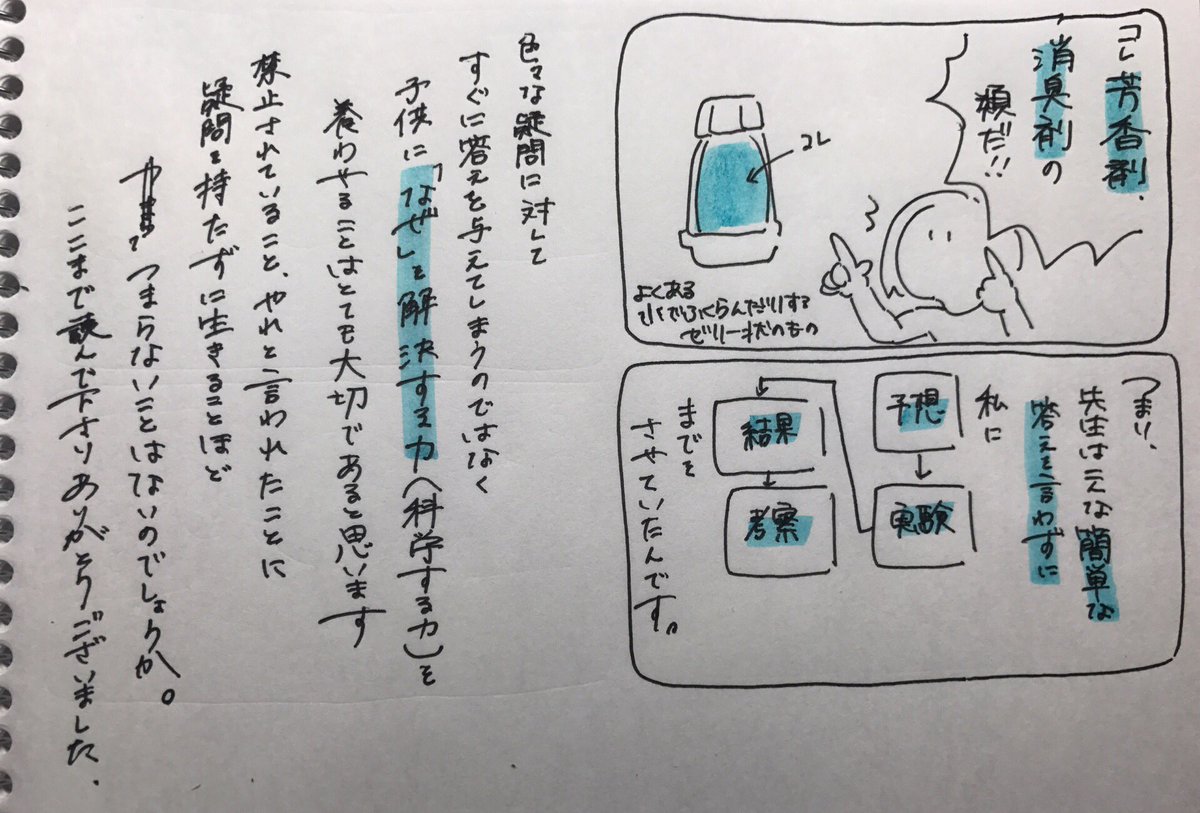 コレ芳香剤、
消臭剤の
類だ!!
コレ
よくある
水でふくらんだりする
ゼリー状のもの
つまり、
先生はこんな簡単な
答えを言わずに
私に
予想
実験
結果
考察
までを
させていたんです。
色々な疑問に対して
すぐに答えを与えてしまうのではなく
子供に「なぜ」を解決する力(科学する力)を
養わせることはとても大切であると思います
禁止されていること、やれと言われたことに
疑問を持たずに生きることほど
つまらないことはないのでしょうか。
ここまで読んで下さりありがとうございました.